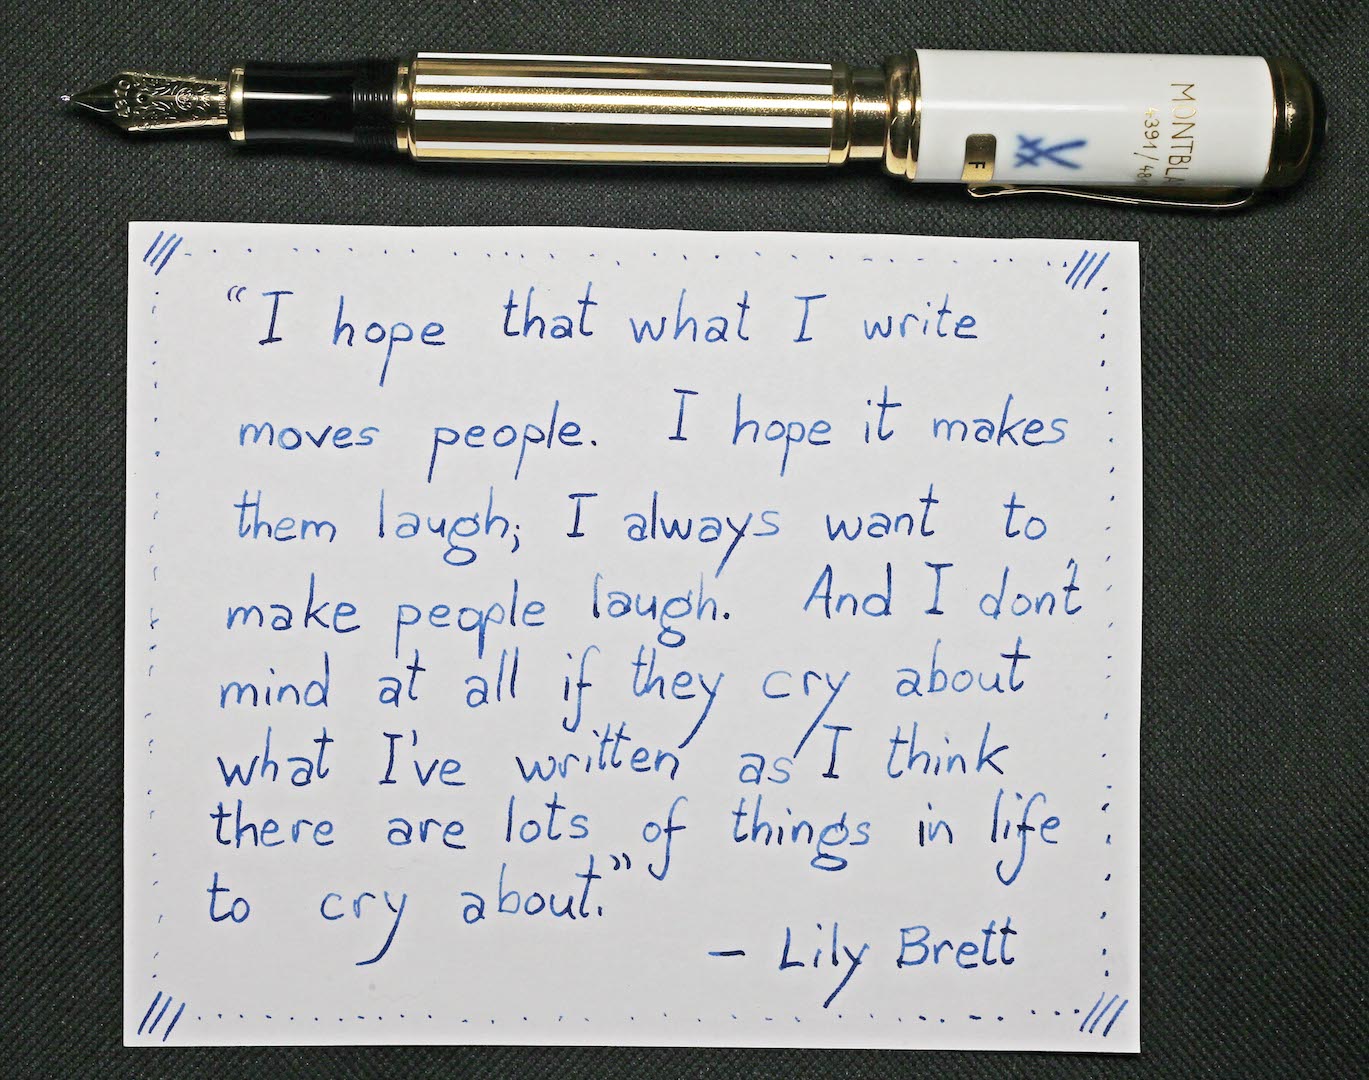 MONTBLA
4391/48
F
"I hope that what I write
moves people. I hope it makes
them laugh; I always want to
make people laugh. And I don't
mind at all if they cry about
what I've written as I think
there are lots of things in life
to cry about."
— Lily Brett